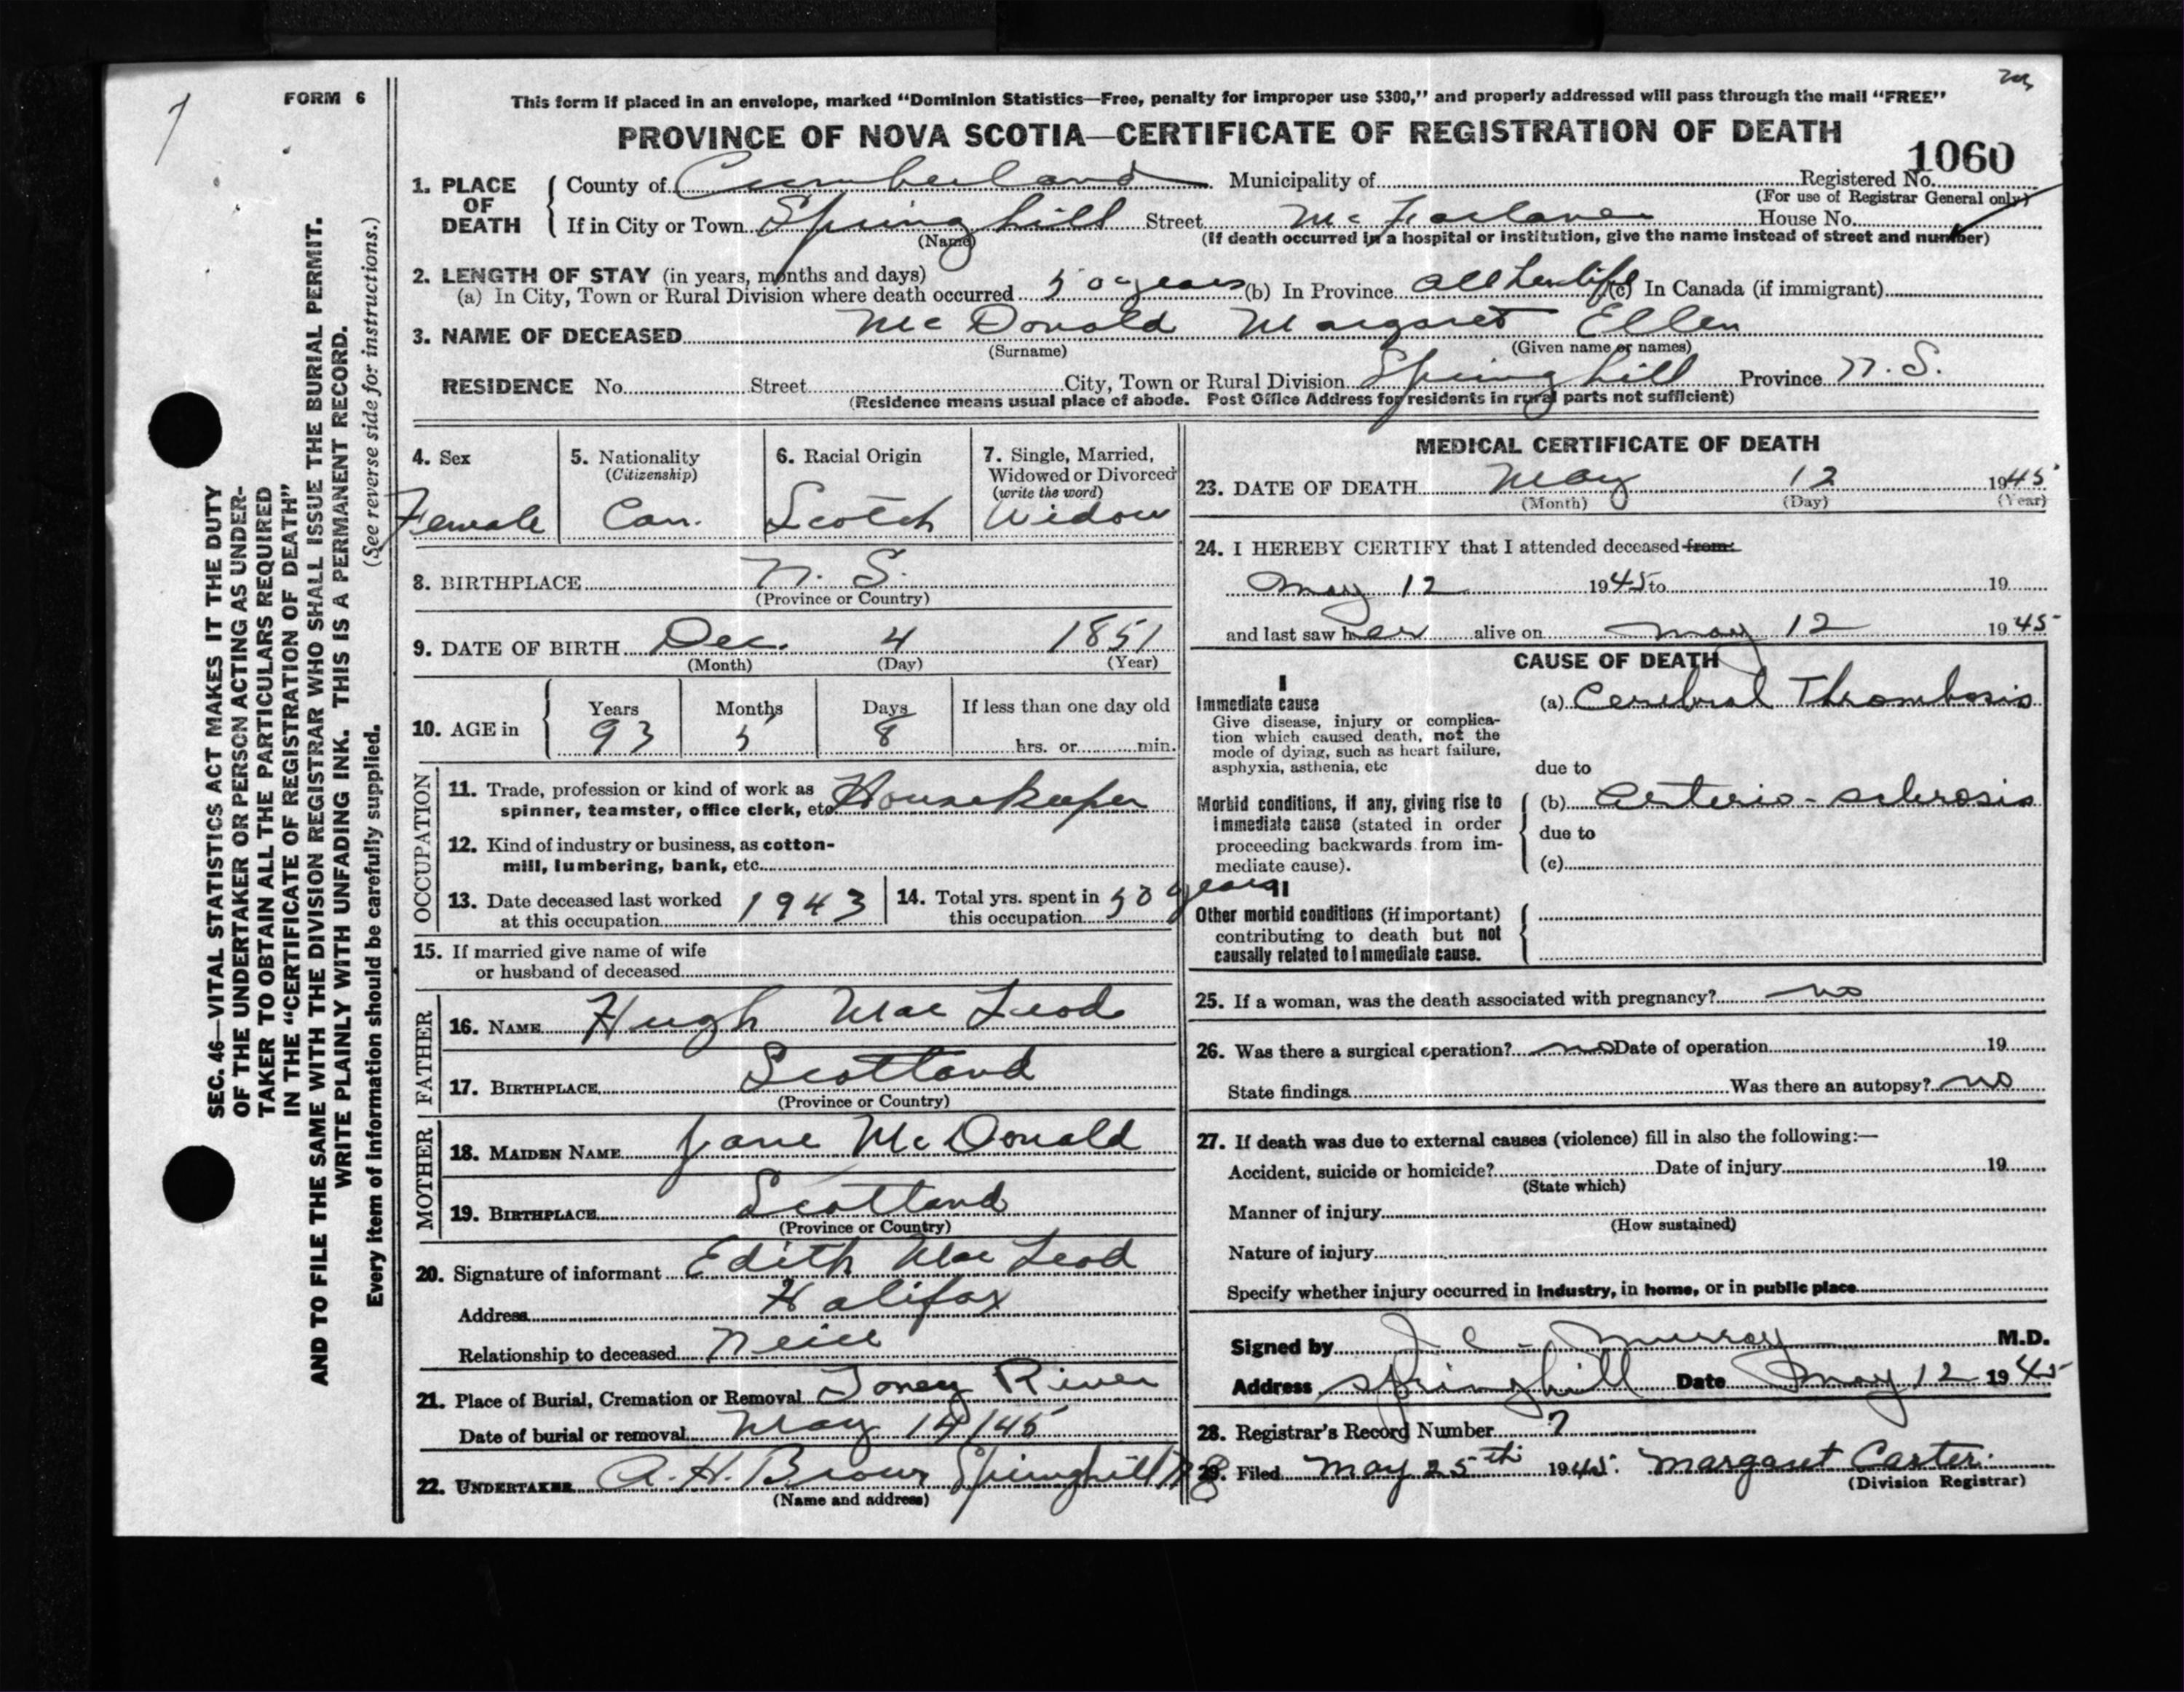 FORM 6
This form if placed in an envelope, marked "Dominion Statistics—Free, penalty for improper use $300," and properly addressed will pass through the mail "FREE"
PROVINCE OF NOVA SCOTIA—CERTIFICATE OF REGISTRATION OF DEATH
1060
1. PLACE OF DEATH County of Cumberland Municipality of Registered No.
(For use of Registrar General only)
If in City or Town Springhill Street McFarlane House No.
(Name) (If death occurred in a hospital or institution, give the name instead of street and number)
2. LENGTH OF STAY (in years, months and days)
(a) In City, Town or Rural Division where death occurred 50 years (b) In Province all her life (c) In Canada (if immigrant)
3. NAME OF DECEASED McDonald Margaret Ellen
(Surname) (Given name or names)
RESIDENCE No. Street City, Town or Rural Division Springhill Province N. S.
(Residence means usual place of abode. Post Office Address for residents in rural parts not sufficient)
4. Sex
Female
5. Nationality
(Citizenship)
Can.
6. Racial Origin
Scotch
7. Single, Married,
Widowed or Divorced
(write the word)
Widow
8. BIRTHPLACE N. S.
(Province or Country)
9. DATE OF BIRTH Dec. 4 1851
(Month) (Day) (Year)
10. AGE in Years Months Days If less than one day old
93 5 8 hrs. or min.
OCCUPATION
11. Trade, profession or kind of work as
spinner, teamster, office clerk, etc. Housekeeper
12. Kind of industry or business, as cotton-
mill, lumbering, bank, etc.
13. Date deceased last worked
at this occupation 1943
14. Total yrs. spent in
this occupation 50 years
15. If married give name of wife
or husband of deceased
FATHER
16. NAME Hugh Mac Leod
17. BIRTHPLACE Scotland
(Province or Country)
MOTHER
18. MAIDEN NAME Jane McDonald
19. BIRTHPLACE Scotland
(Province or Country)
20. Signature of informant Edith Mac Leod
Address Halifax
Relationship to deceased Neice
21. Place of Burial, Cremation or Removal Toney River
Date of burial or removal May 14/45
22. UNDERTAKER A. H. Brown Springhill N S
(Name and address)
MEDICAL CERTIFICATE OF DEATH
23. DATE OF DEATH May 12 1945
(Month) (Day) (Year)
24. I HEREBY CERTIFY that I attended deceased from:
May 12 1945 to 19
and last saw her alive on May 12 1945
CAUSE OF DEATH
I
Immediate cause
Give disease, injury or complica-
tion which caused death, not the
mode of dying, such as heart failure,
asphyxia, asthenia, etc
(a) Cerebral Thrombosis
due to
Morbid conditions, if any, giving rise to
immediate cause (stated in order
proceeding backwards from im-
mediate cause).
(b) Arterio-sclerosis
due to
(c)
II
Other morbid conditions (if important)
contributing to death but not
causally related to immediate cause.
25. If a woman, was the death associated with pregnancy? no
26. Was there a surgical operation? no Date of operation 19
State findings Was there an autopsy? no
27. If death was due to external causes (violence) fill in also the following:—
Accident, suicide or homicide? Date of injury 19
(State which)
Manner of injury
(How sustained)
Nature of injury
Specify whether injury occurred in industry, in home, or in public place
Signed by J. C. Murray M.D.
Address Springhill Date May 12 1945
28. Registrar's Record Number 7
29. Filed May 25th 1945. Margaret Carter.
(Division Registrar)
7
SEC. 46—VITAL STATISTICS ACT MAKES IT THE DUTY
OF THE UNDERTAKER OR PERSON ACTING AS UNDER-
TAKER TO OBTAIN ALL THE PARTICULARS REQUIRED
IN THE "CERTIFICATE OF REGISTRATION OF DEATH"
AND TO FILE THE SAME WITH THE DIVISION REGISTRAR WHO SHALL ISSUE THE BURIAL PERMIT.
WRITE PLAINLY WITH UNFADING INK. THIS IS A PERMANENT RECORD.
Every item of information should be carefully supplied. (See reverse side for instructions.)